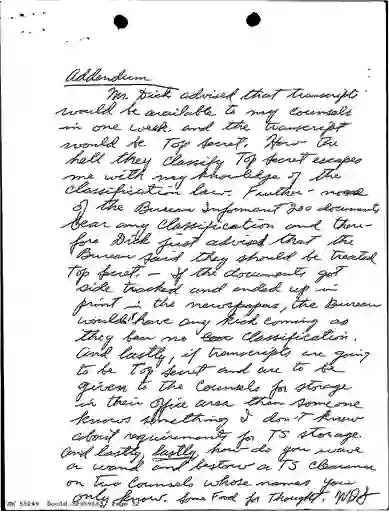 Addendum
Mr. Dick advised that transcripts
would be available to my counsels
in one week, and the transcript
would be Top Secret. How the
hell they classify Top Secret escapes
me with my knowledge of the
classification law. Further - none
of the Bureau Informant documents
bear any classification and there-
fore Dick just advised that the
Bureau said they should be treated
Top Secret. - If the documents got
side tracked and ended up in
print in the newspapers, the Bureau
wouldn't have any kick coming as
they bear no classification.
And lastly, if transcripts are going
to be Top Secret and are to be
given to the Counsels for storage
in their office area then someone
knows something I don't know
about requirements for TS storage.
And lastly, lastly how do you wave
a wand and bestow a TS clearance
on two Counsels whose names you
only know. Some Food for Thought.
Page